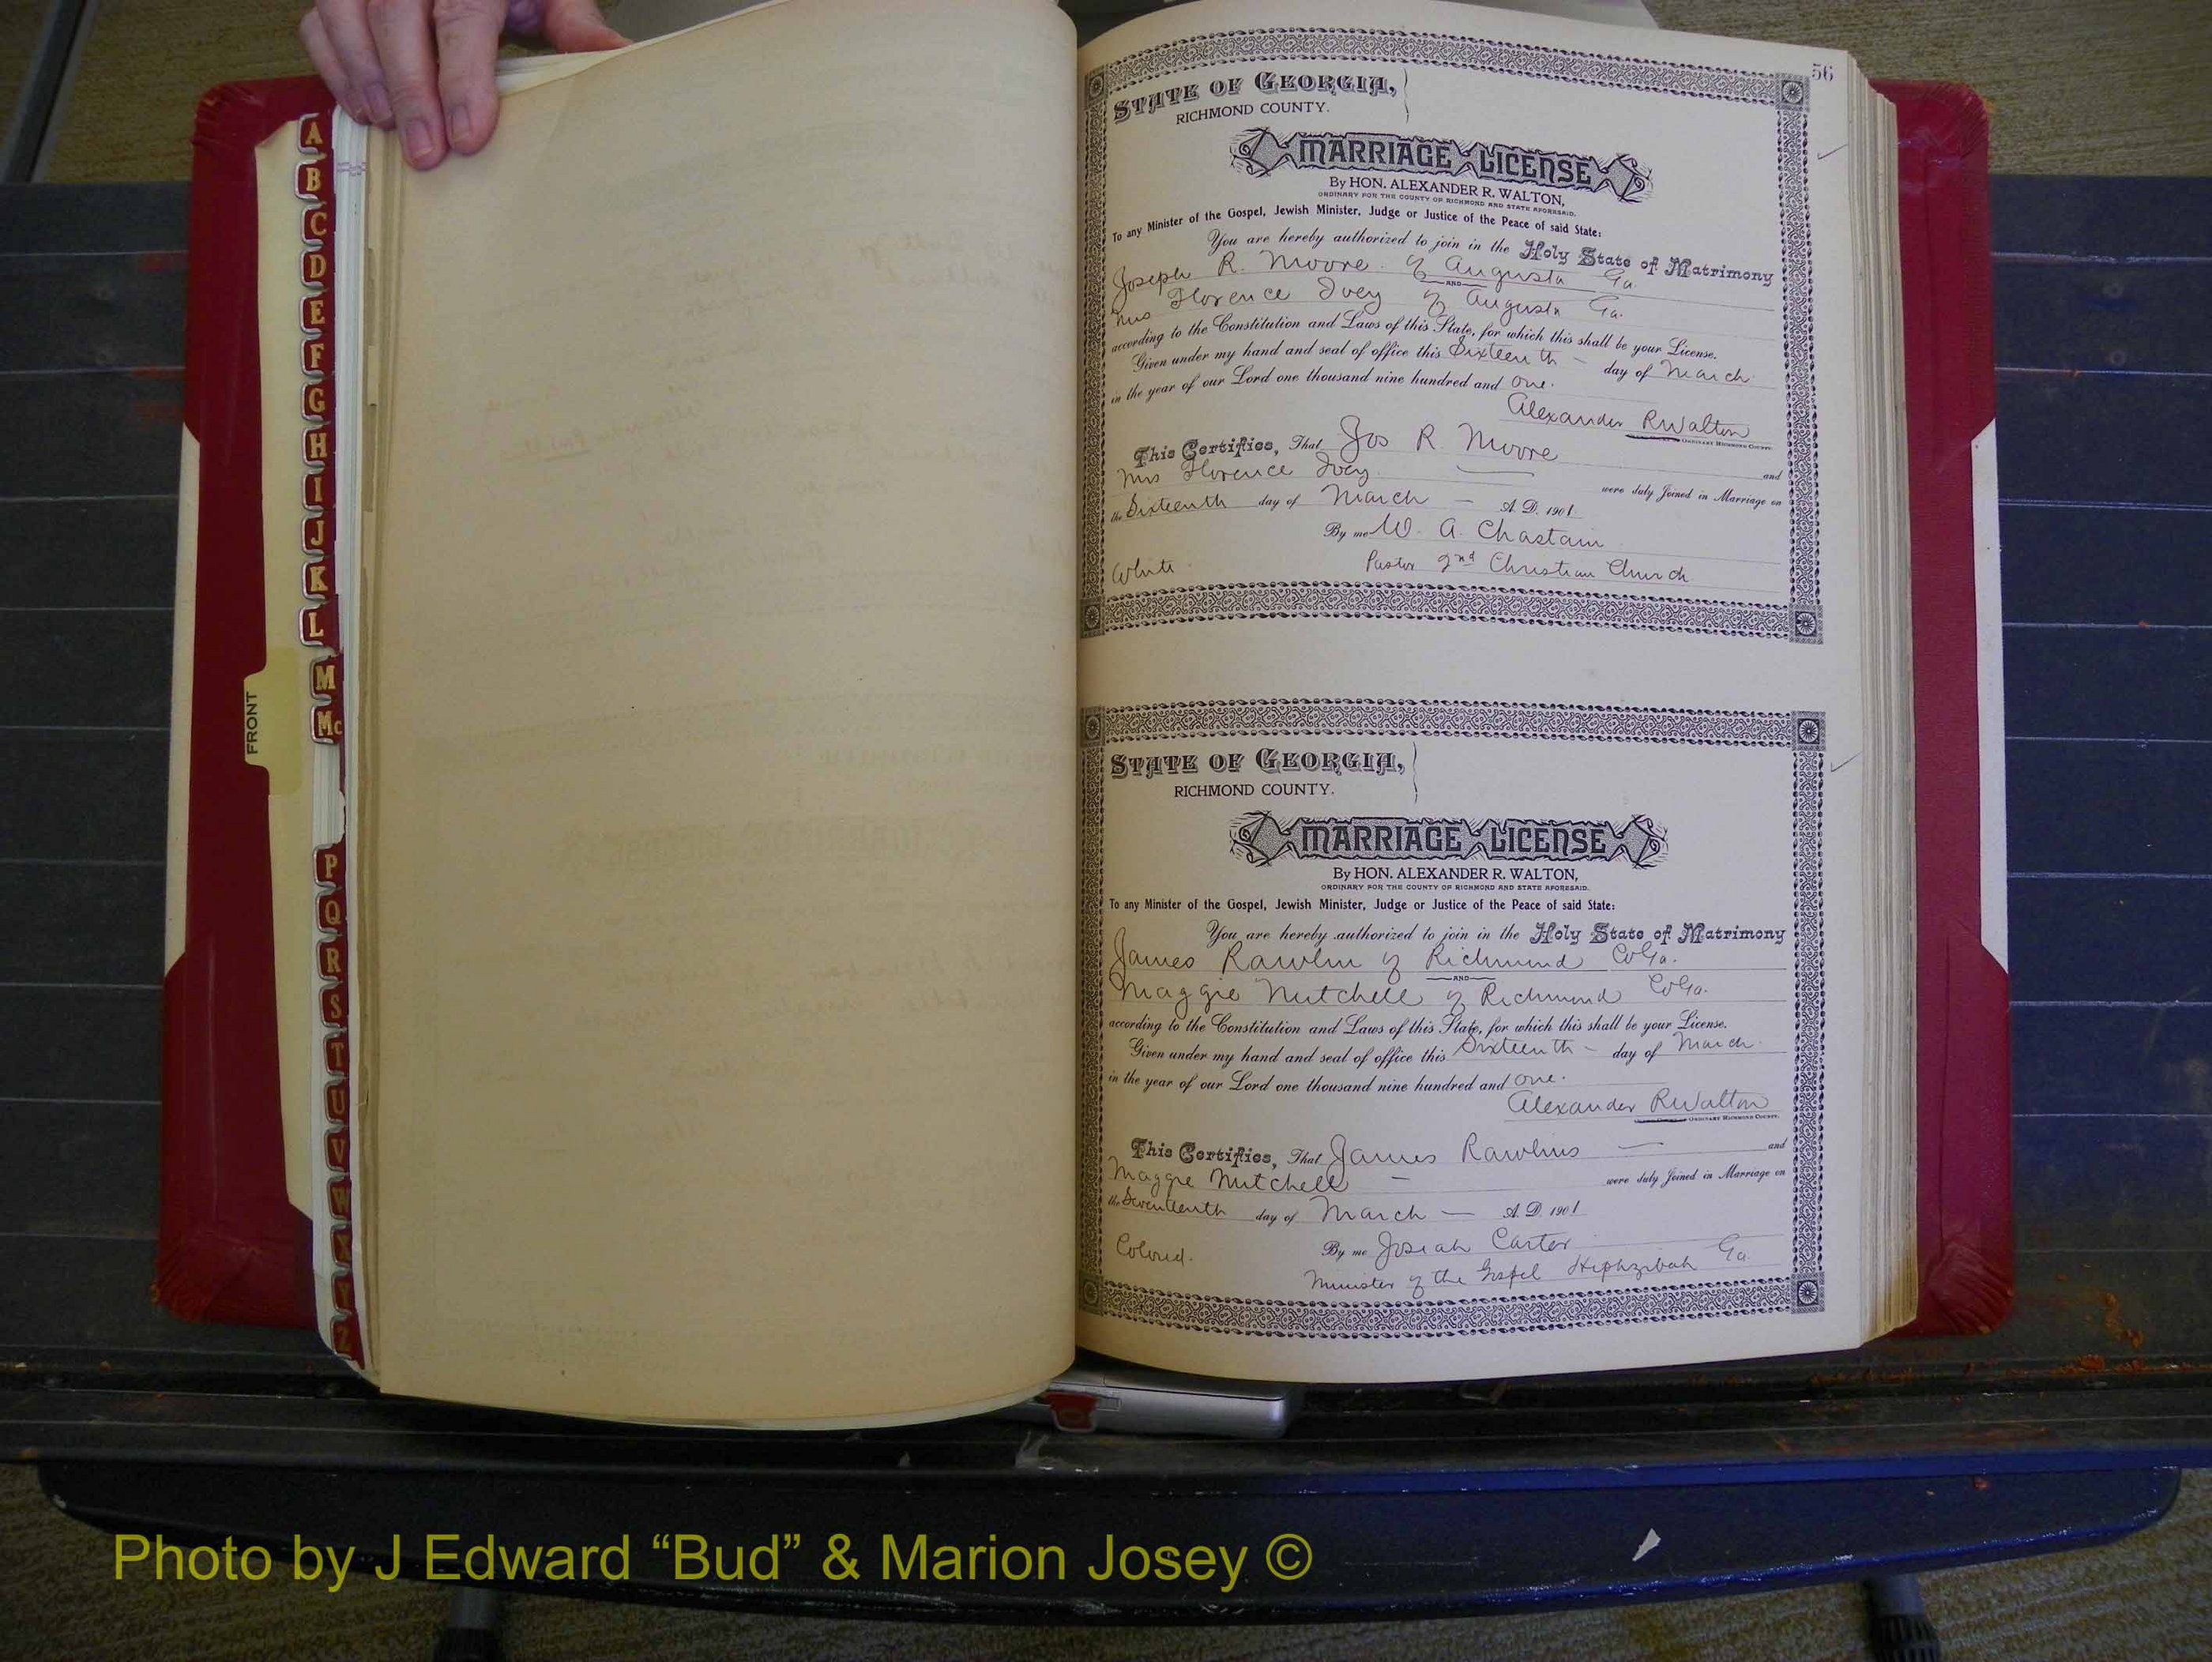 A
B
C
D
E
F
G
H
I
J
K
L
M
Mc
P
Q
R
S
T
U
V
W
X
Y
Z
FRONT
56
STATE OF GEORGIA,
RICHMOND COUNTY.
MARRIAGE LICENSE
By HON. ALEXANDER R. WALTON,
ORDINARY FOR THE COUNTY OF RICHMOND AND STATE AFORESAID.
To any Minister of the Gospel, Jewish Minister, Judge or Justice of the Peace of said State:
You are hereby authorized to join in the Holy State of Matrimony
Joseph R. Moore of Augusta Ga.
AND
Mrs Florence Ivey of Augusta Ga.
according to the Constitution and Laws of this State, for which this shall be your License.
Given under my hand and seal of office this Sixteenth day of March
in the year of our Lord one thousand nine hundred and one.
Alexander R Walton
ORDINARY RICHMOND COUNTY.
This Certifies, That Jos R. Moore and
Mrs Florence Ivey were duly Joined in Marriage on
the Sixteenth day of March — A. D. 1901
By me W. A. Chastain
White Pastor 2nd Christian Church
STATE OF GEORGIA,
RICHMOND COUNTY.
MARRIAGE LICENSE
By HON. ALEXANDER R. WALTON,
ORDINARY FOR THE COUNTY OF RICHMOND AND STATE AFORESAID.
To any Minister of the Gospel, Jewish Minister, Judge or Justice of the Peace of said State:
You are hereby authorized to join in the Holy State of Matrimony
James Rawlin of Richmond Co Ga.
AND
Maggie Mitchell of Richmond Co Ga.
according to the Constitution and Laws of this State, for which this shall be your License.
Given under my hand and seal of office this Sixteenth — day of March
in the year of our Lord one thousand nine hundred and one.
Alexander R Walton
ORDINARY RICHMOND COUNTY.
This Certifies, That James Rawlins — and
Maggie Mitchell — were duly Joined in Marriage on
the Seventeenth day of March — A. D. 1901
Colored. By me Josiah Carter
Minister of the Gospel Hephzibah Ga.
Photo by J Edward “Bud” & Marion Josey ©